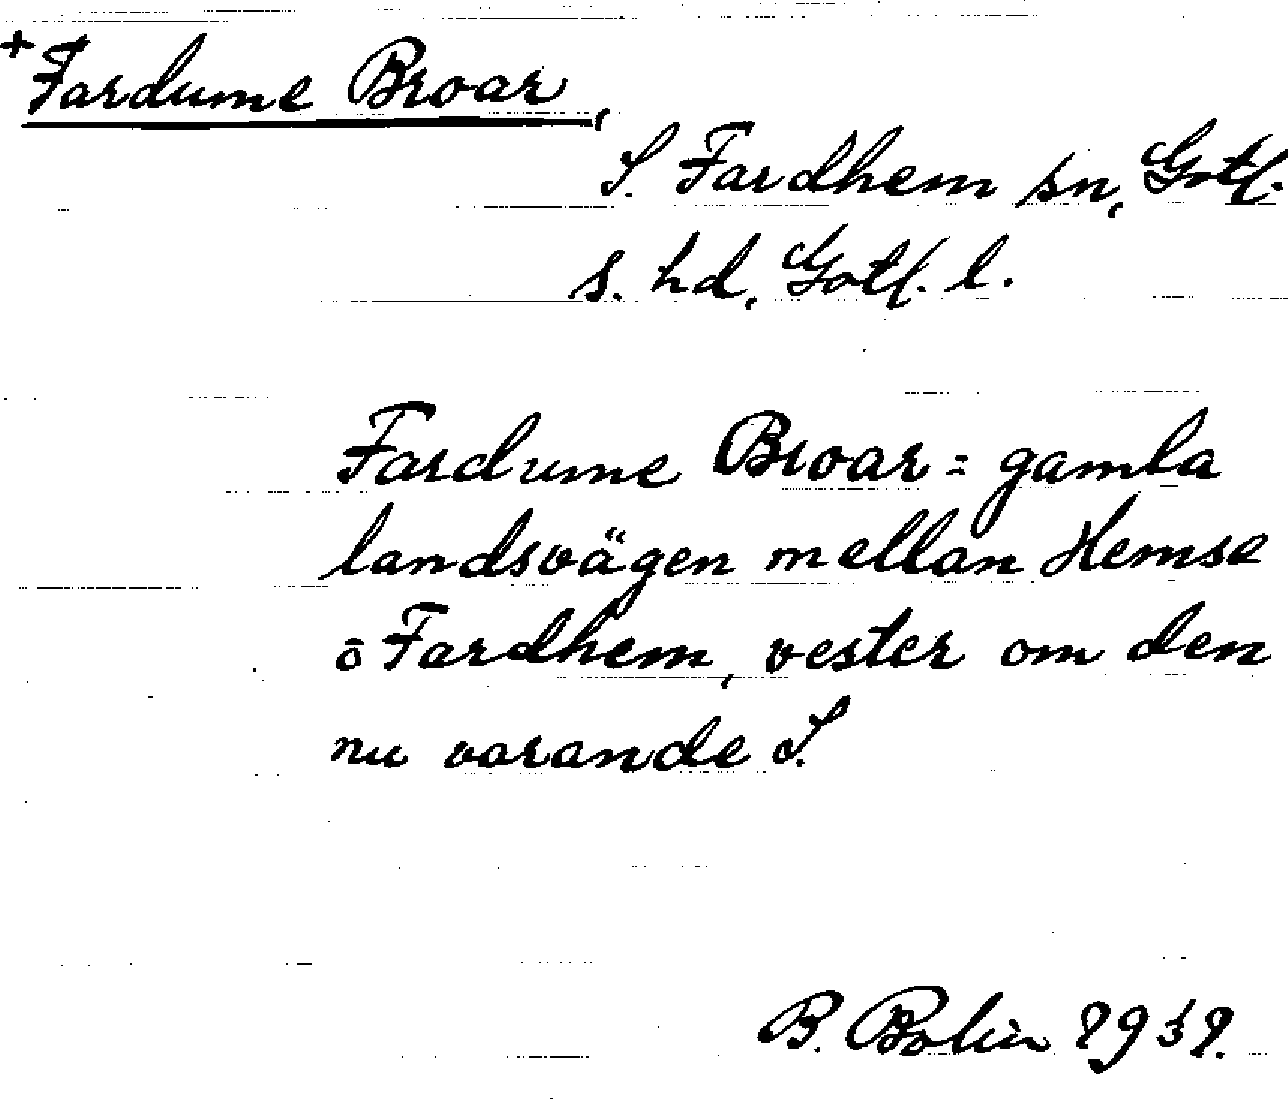 +Fardume Broar,
S. Fardhem sn, Gotl.
s. hd, Gotl. l.
Fardume Broar = gamla
landsvägen mellan Hemse
ō Fardhem, vester om den
nu varande S.
B. Bolin